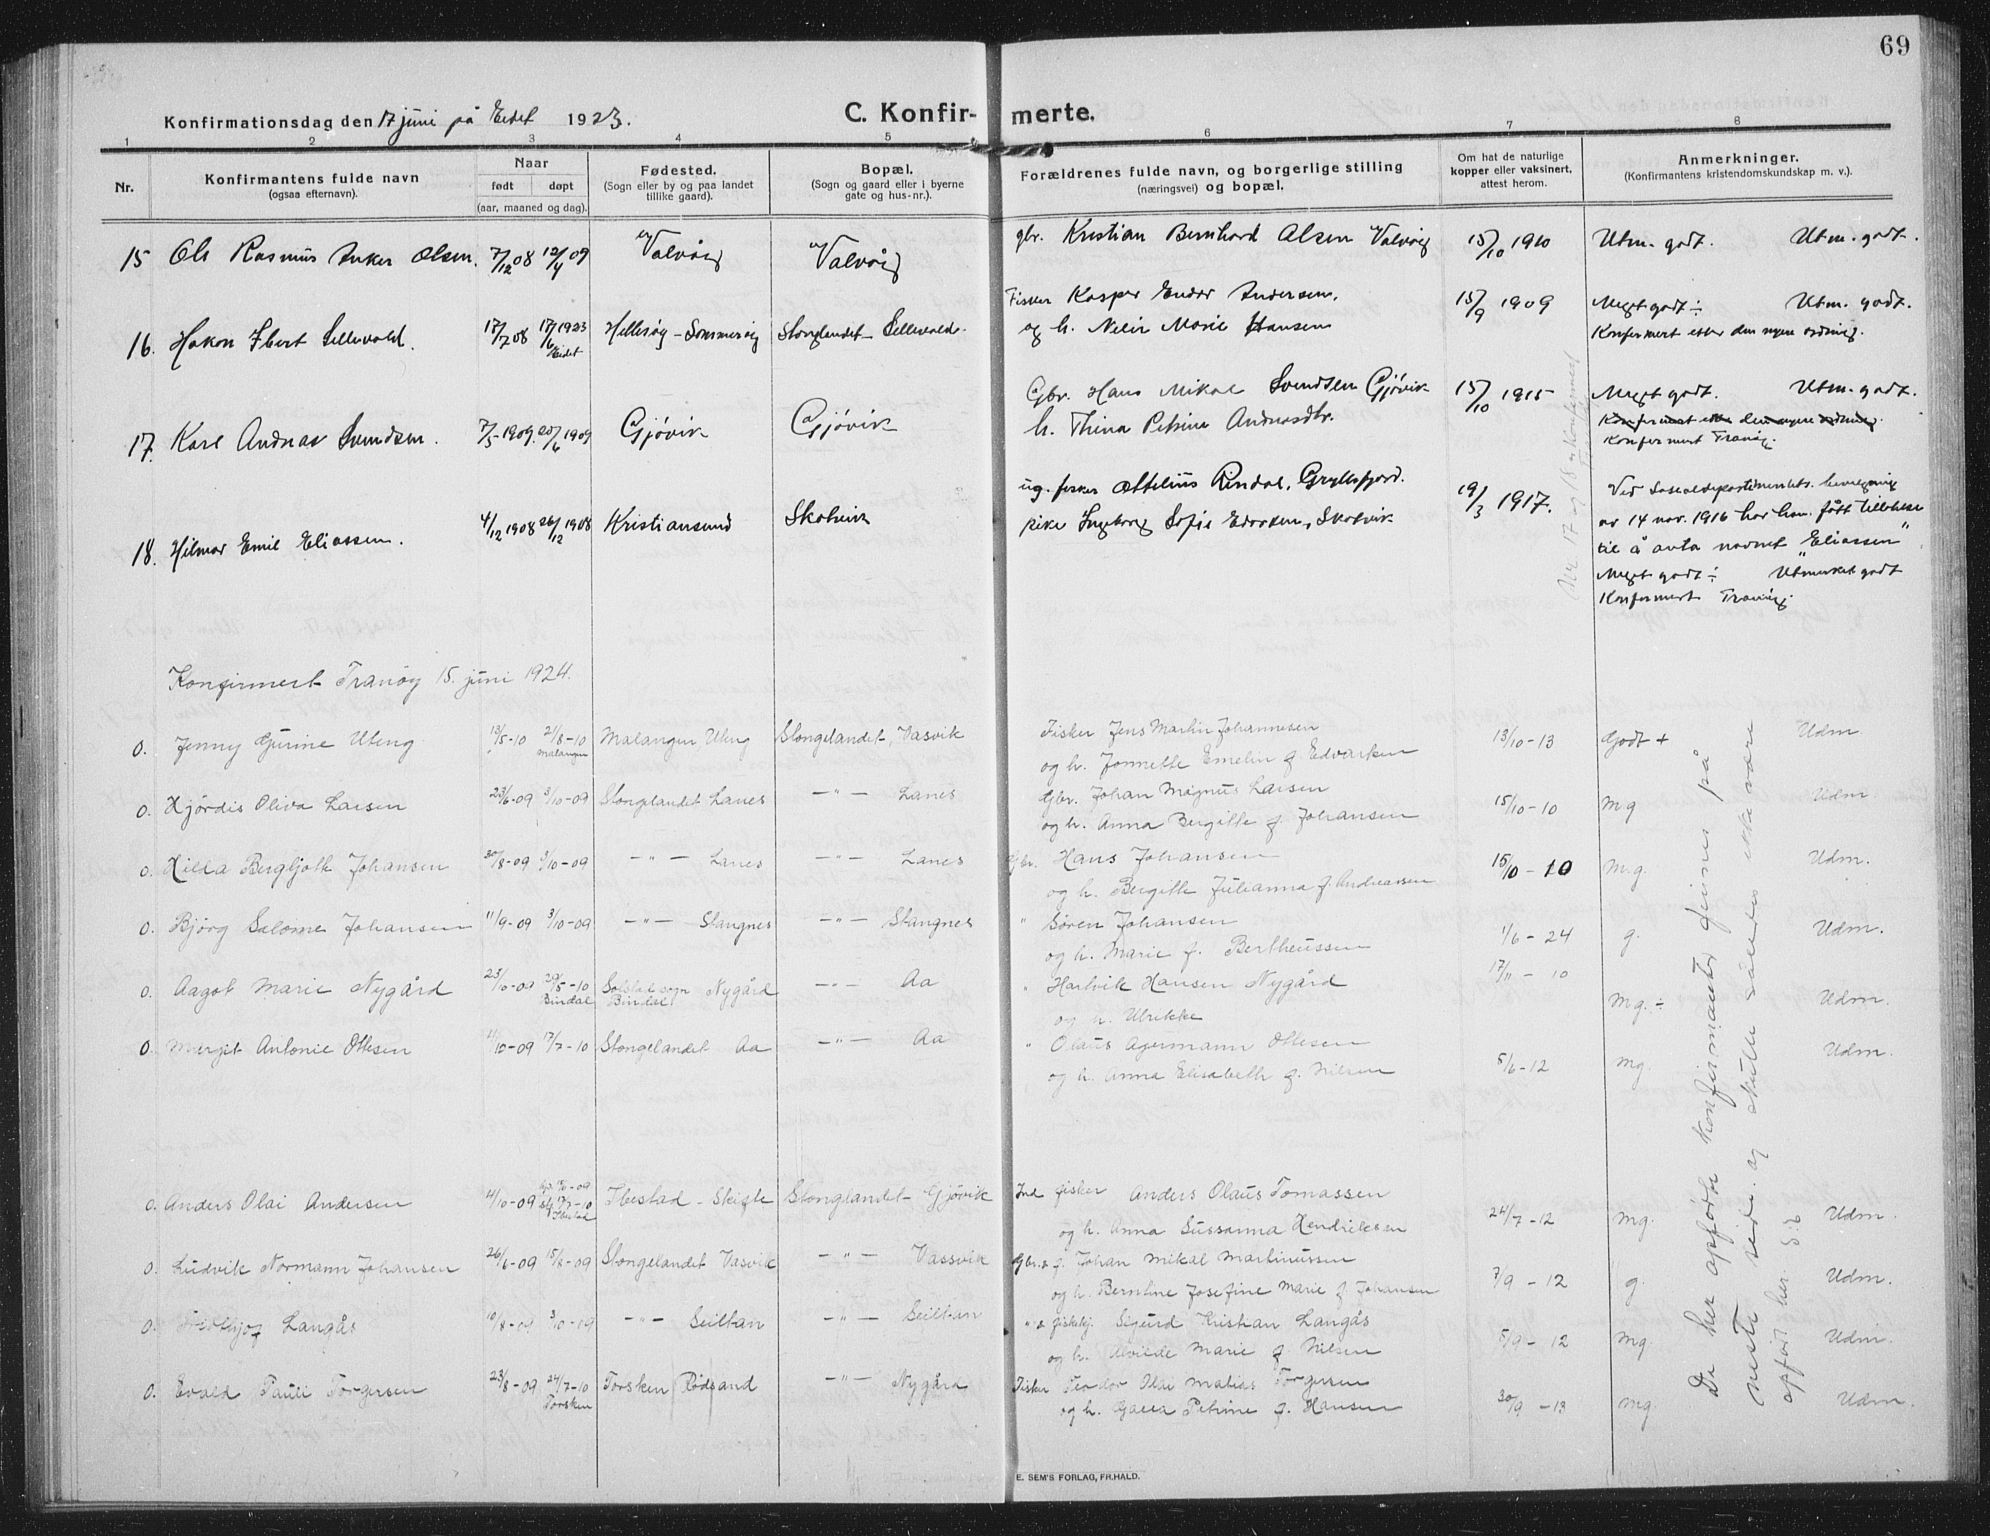 69
Konfirmationsdag den 17 juni på Eidet 1923.
C. Konfirmerte.
1 2 3 4 5 6 7 8
Nr.
Konfirmantens fulde navn
(ogsaa efternavn).
Naar
født døpt
(aar, maaned og dag).
Fødested.
(Sogn eller by og paa landet
tillike gaard).
Bopæl.
(Sogn og gaard eller i byerne
gate og hus-nr.).
Forældrenes fulde navn, og borgerlige stilling
(næringsvei) og bopæl.
Om hat de naturlige
kopper eller vaksinert,
attest herom.
Anmerkninger.
(Konfirmantens kristendomskundskap m. v.).
15 Ole Rasmus Anker Olsen. 7/12 08 12/4 09 Valvåg Valvåg gbr. Kristian Bernhard Olsen Valvåg 15/10 1910 Utm. godt. Utm. godt.
16. Hakon Ebert Sellevold. 17/7 08 17/6 1923 Eidet Hillesøy - Sommerøy Stonglandet - Sellevold. Fisker Kasper Endor Andersen. 15/9 1909 Meget godt ÷ Utm. godt.
og h. Marie Hansen Konfermert etter den nyere ordning.
17. Karl Andreas Svendsen. 7/5 1909. 20/6 1909 Gjøvik Gjøvik Gbr. Hans Mikal Svendsen Gjøvik 15/10 1915 Meget godt. Utm. godt.
h. Thina Petrine Andreasdtr. Konfermert etter den nyere ordning.
Konfermert Tranøy.
18. Hilmar Emil Eliassen. 4/12 1908 26/12 1908 Kristiansund Skolvik ug. fisker Ottelius Rindal, Gryllefjord. 19/3 1917. Ved Sosialdepartementets bevilgning
pike Ingeborg Sofie Edvardsen, Skolvik av 14 nov. 1916 har han fått tillatelse
til å anta navnet "Eliassen"
Meget godt ÷ Utmerket godt
Konfermert Tranøy.
Nr 17 og 18 konfermert
Konfirmert Tranøy 15. juni 1924.
0. Jenny Gurine Uteng 13/5-10 21/8-10 Malangen Malangen Uteng Stongelandet, Vasvik Fisker Jens Martin Johannesen 13/10-13 Godt + Udm
og h. Jonnette Emelin f. Edvarksen
0. Hjørdis Oliva Larsen 23/6-09 3/10-09 Stongelandet Lanes —"— Lanes Gbr. Johan Magnus Larsen 15/10-10 mg Udm.
og h. Anna Bergitte f. Johansen
0. Hilda Bergljott Johansen 30/8-09 3/10-09 —"— Lanes —"— Lanes Gbr. Hans Johansen 15/10-10 m.g. Udm.
og h. Bergitte Julianna f. Andreassen
0. Bjørg Salome Johansen 11/9-09 3/10-09 —"— Stangnes —"— Stangnes " Søren Johansen 1/6-24 g. Udm.
og h. Marie f. Bertheussen
0. Aagot Marie Nygård 23/10-09 29/5-10 Bindal Solstad sogn Bindal Nygård —"— Aa " Hartvik Hansen Nygård 17/11-10 mg. ÷ Udm.
og h. Ulrikke
0. Margit Antonie Ottesen 4/10-09 17/7-10 Stongelandet Aa —"— Aa " Olaus Agermann Ottesen 5/6-12 mg. Udm.
og h. Anna Elisabeth f. Nilsen
0. Anders Olai Andersen 4/10-09 17/7-10 Ibestad Ibestad - Skigte Stonglandet - Gjøvik Ind fisker Anders Olaus Tomassen 24/7-12 mg. Udm.
og h. Anna Sussanna Hendriksen
0. Ludvik Normann Johansen 26/6-09 15/8-09 Stongelandet Vasvik —"— Vassvik Gbr. & f. Johan Mikal Martinussen 7/9-12 g. Udm.
og h. Berntine Josefine Marie f. Johansen
0. Langås 10/8-09 3/10-09 —"— Seiltan —"— Seiltan " & fiskekj. Sigurd Kristian Langås 5/9-12 mg. Udm.
og h. Alvilde Marie f. Nilsen
0. Evald Pauli Torgersen 23/8-09 24/7-10 Torsken Torsken Rødsand —"— Nygård Fisker Teodor Olai Matias Torgersen 30/9-13 mg. Udm.
og h. Petrine f. Hansen
De her opførte konfirmanter finnes på
neste side. og skulde således ikke være
opført her. S:E
E. SEM'S FORLAG, FR.HALD.